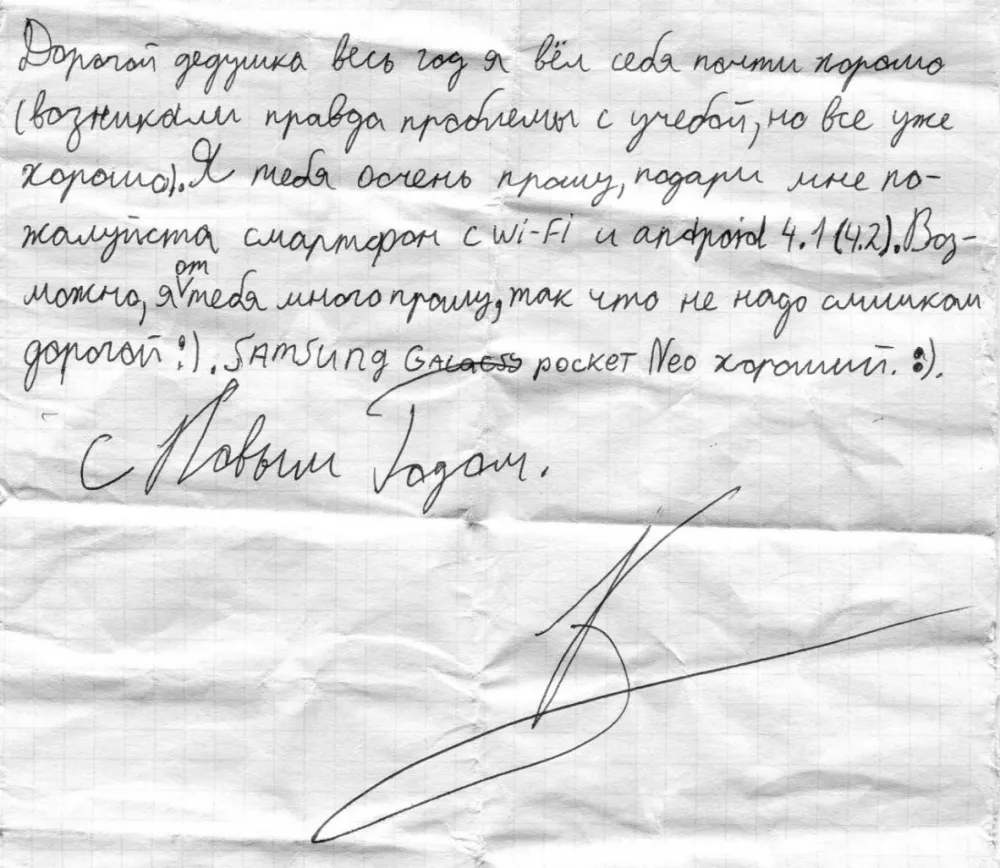 Дорогой дедушка весь год я вёл себя почти хорошо
(возникали правда проблемы с учебой, но все уже
хорошо). Я тебя очень прошу, подари мне по-
жалуйста смартфон с Wi-Fi и android 4.1 (4.2). Воз-
можно, я от тебя много прошу, так что не надо слишком
дорогой :). SAMSung pocket Neo хороший. :).
С Новым Годом.